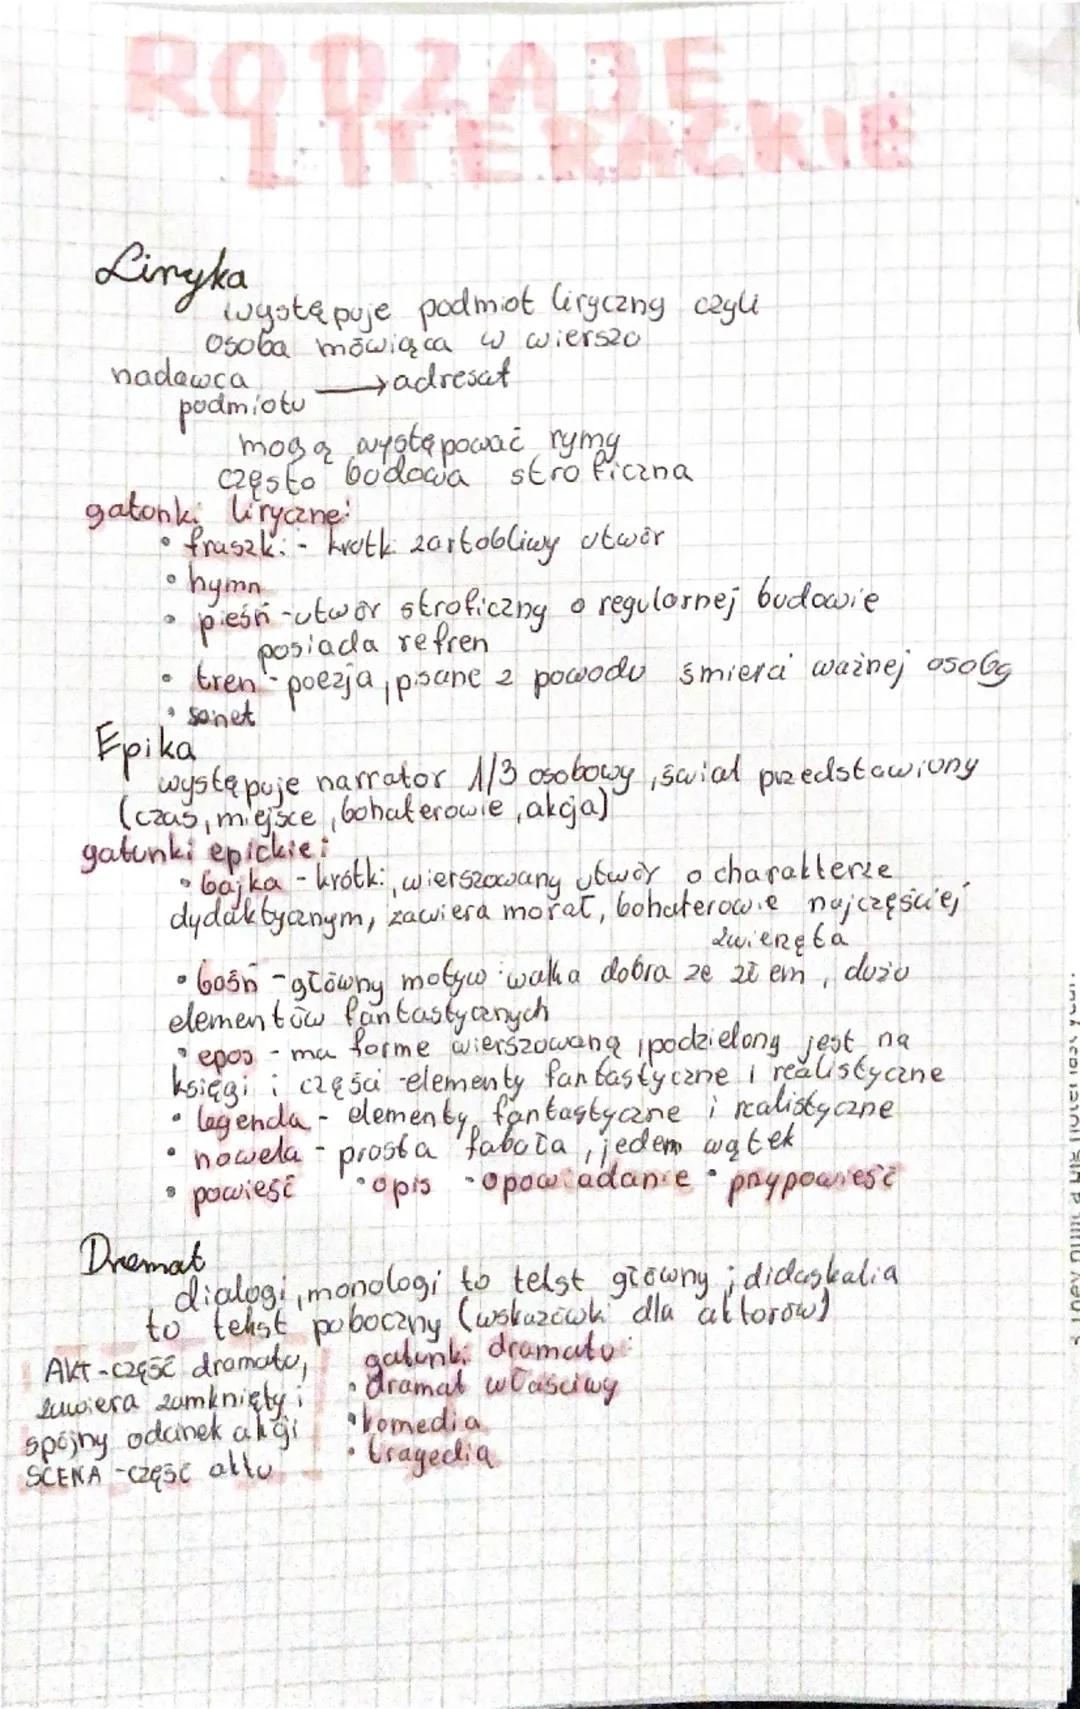 RODZAJE
LITERACKIE
Liryka
występuje podmiot liryczny czyli
osoba mówiąca w wierszu
nadawca → adresat
podmiotu
mogą występować rymy
często budowa stroficzna
gatunki liryczne:
• fraszki - krótki żartobliwy utwór
• hymn
• pieśń - utwór stroficzny o regularnej budowie
posiada refren
• tren - poezja, pisane z powodu śmierci ważnej osoby
• sonet
Epika
występuje narrator 1/3 osobowy, świat przedstawiony
(czas, miejsce, bohaterowie, akcja)
gatunki epickie:
• bajka - krótki, wierszowany utwór o charakterze
dydaktycznym, zawiera morał, bohaterowie najczęściej
zwierzęta
• baśń - główny motyw: walka dobra ze złem, dużo
elementów fantastycznych
• epos - ma forme wierszowaną, podzielony jest na
księgi i części - elementy fantastyczne i realistyczne
• legenda - elementy fantastyczne i realistyczne
• nowela - prosta fabuła, jeden wątek
• powieść • opis • opowiadanie • przypowieść
Dramat
dialogi, monologi to tekst główny; didaskalia
to tekst poboczny (wskazówki dla aktorów)
AKT - część dramatu,
zawiera zamknięty i
spójny odcinek akcji
SCENA - część aktu
gatunki dramatu:
• dramat właściwy
• komedia
• tragedia